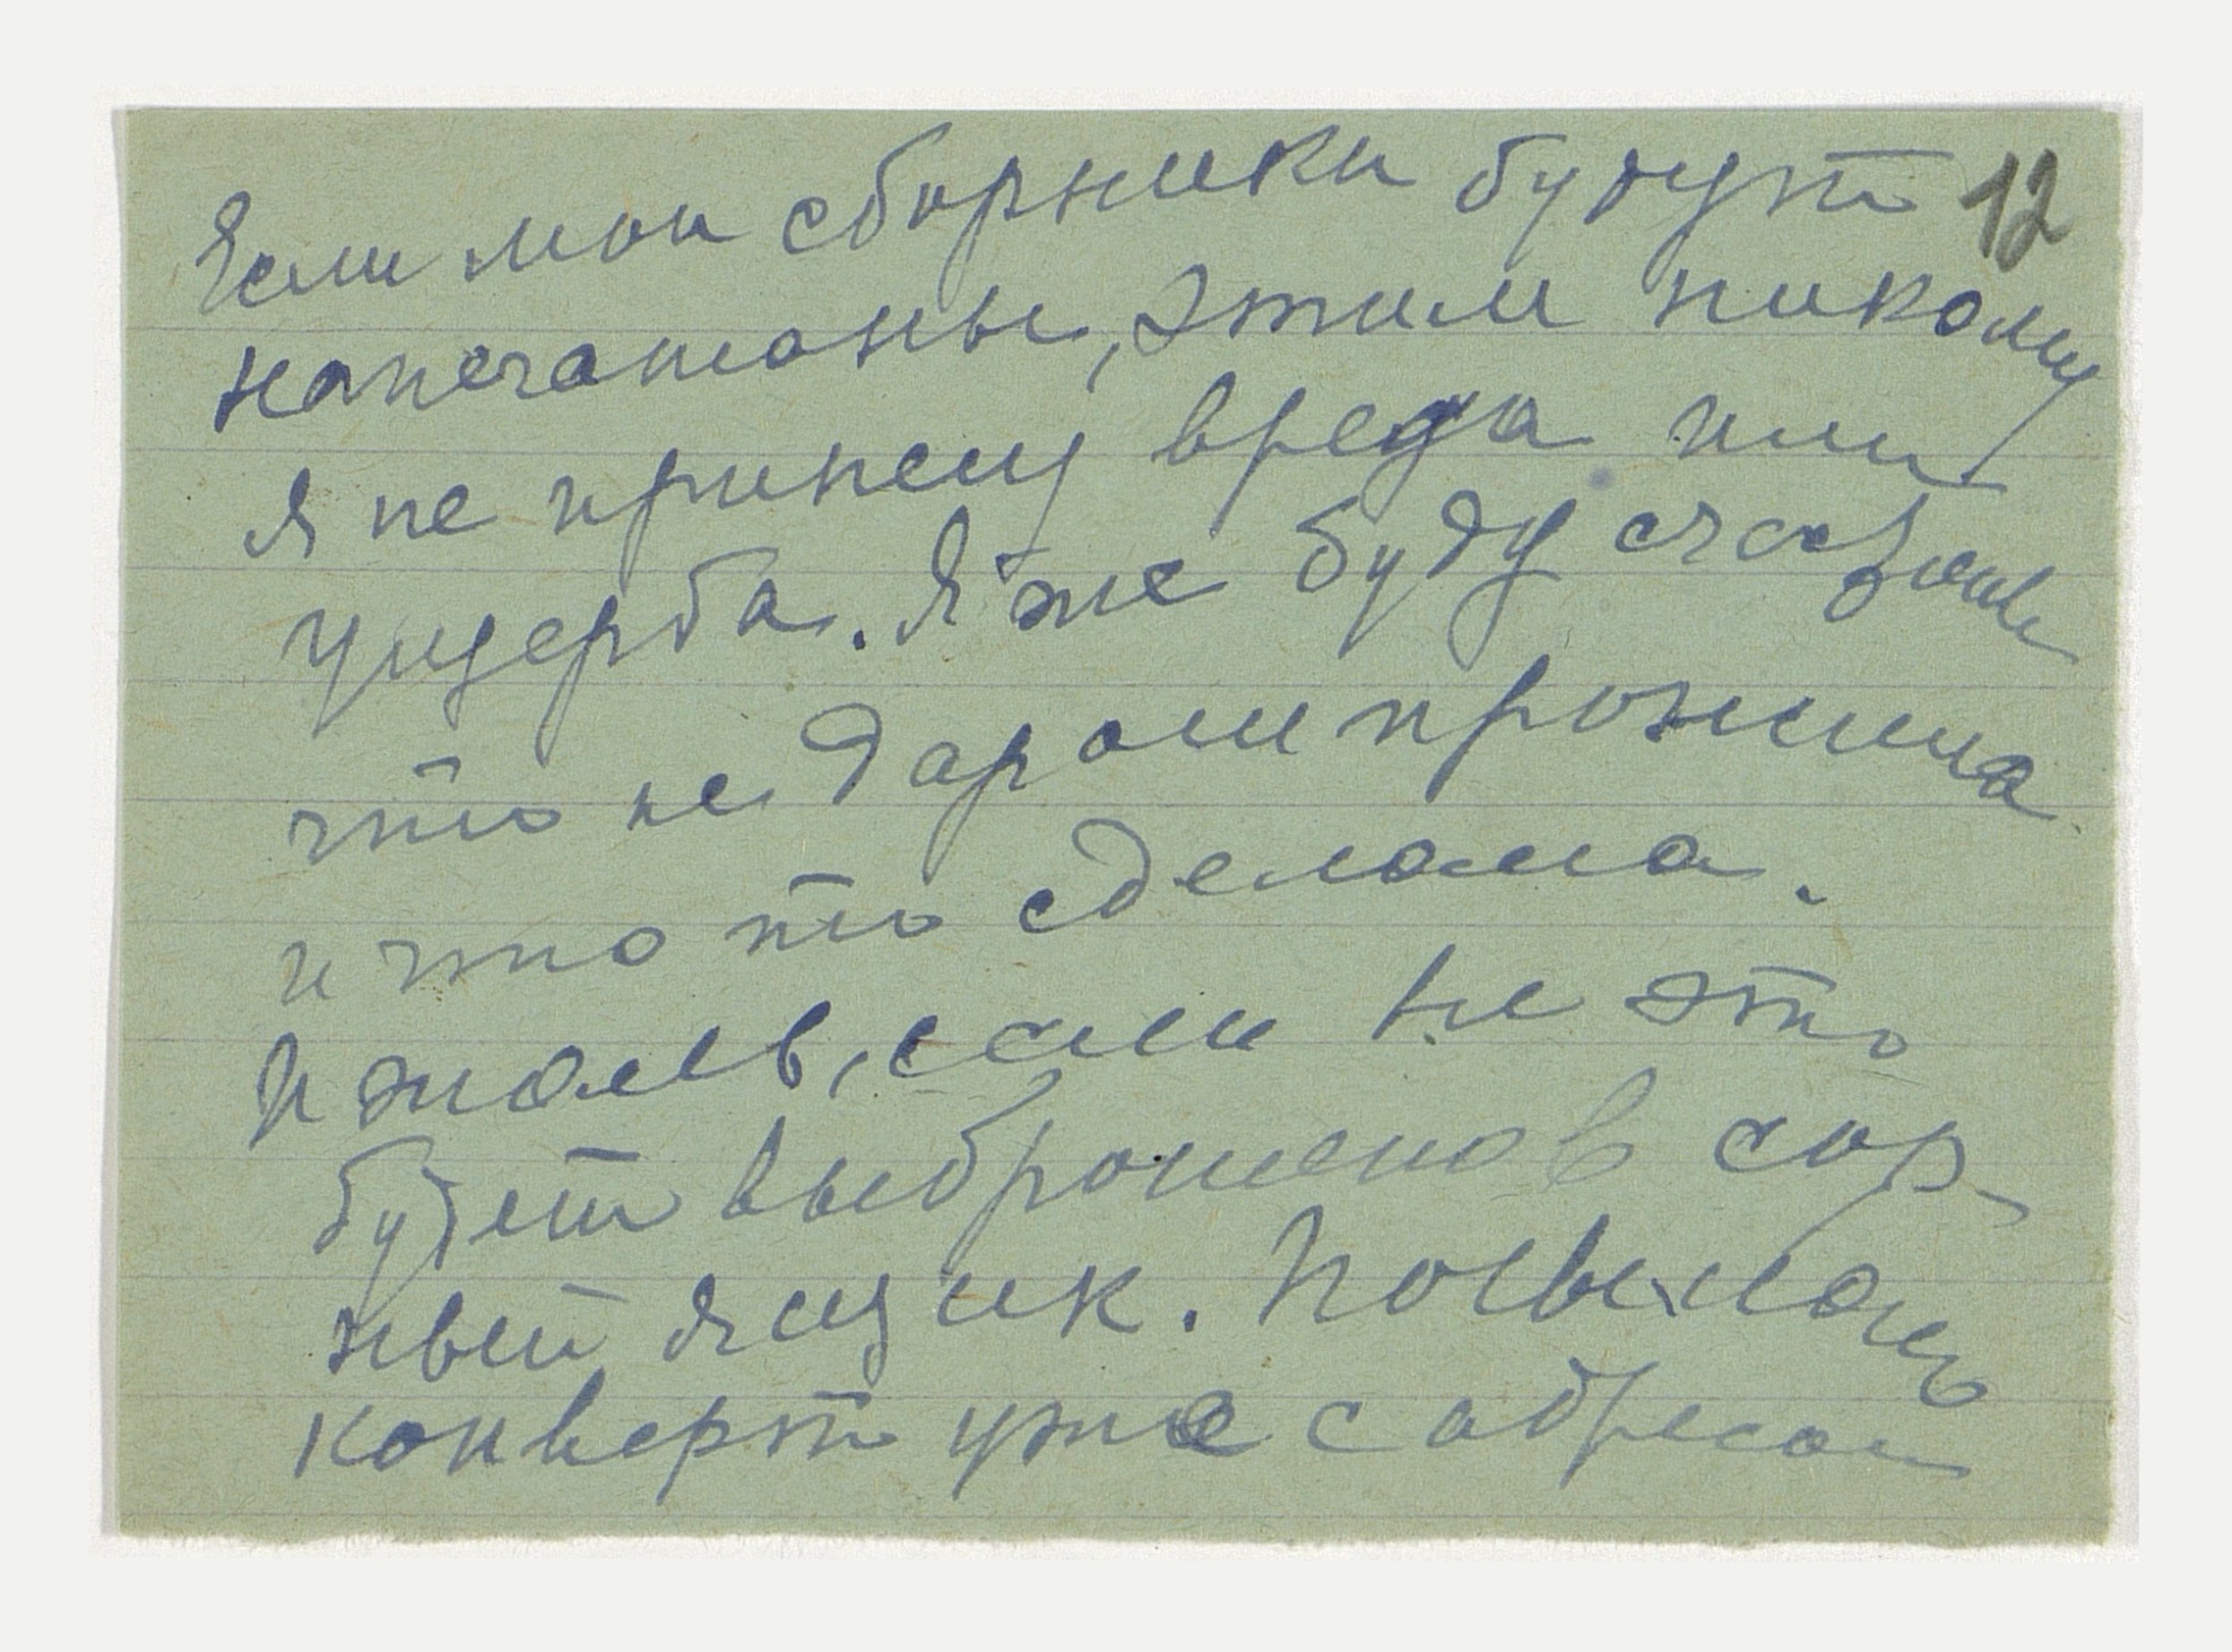 Если мои сборники будут 12
напечатаны, этим никому
я не принесу вреда или
ущерба. Я же буду счастлива
что не даром прожила
и что то сделала.
И жаль, если не это
будет выброшено в сор-
ный ящик. Посылаю
конверт уже с адресом